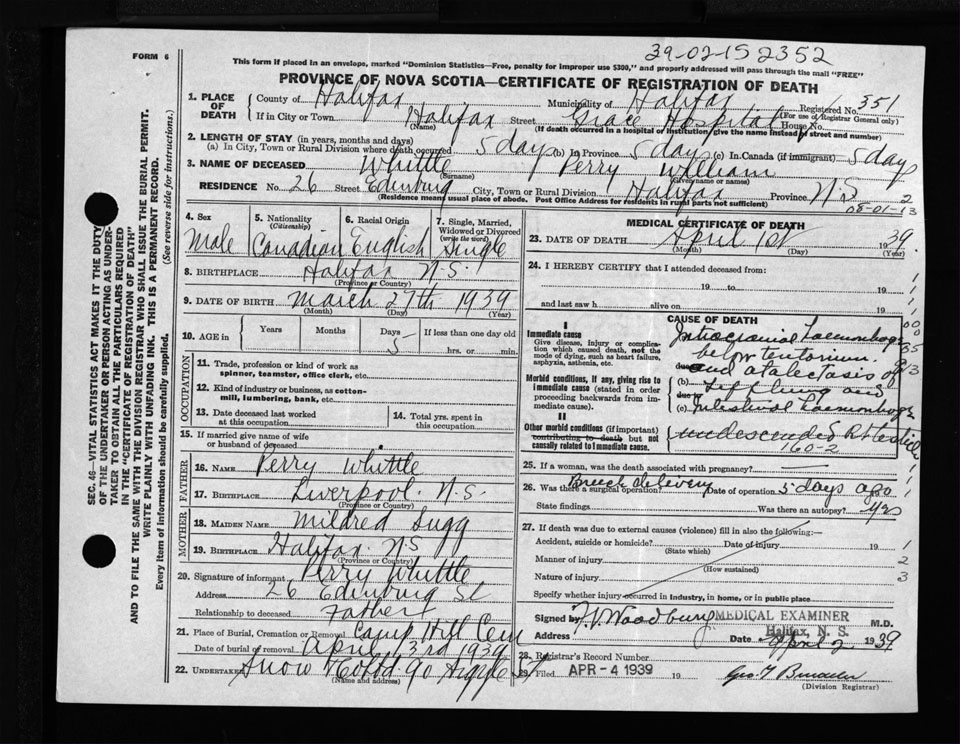 FORM 6
39-02-15 2352
This form if placed in an envelope, marked "Dominion Statistics—Free, penalty for improper use $300," and properly addressed will pass through the mail "FREE"
PROVINCE OF NOVA SCOTIA—CERTIFICATE OF REGISTRATION OF DEATH
1. PLACE OF DEATH
County of Halifax Municipality of Halifax Registered No. 351
(For use of Registrar General only)
If in City or Town Halifax Street Grace Hospital House No.
(Name) (If death occurred in a hospital or institution, give the name instead of street and number)
2. LENGTH OF STAY (in years, months and days)
(a) In City, Town or Rural Division where death occurred 5 days (b) In Province 5 days (c) In Canada (if immigrant) 5 days
3. NAME OF DECEASED Whittle Perry William
(Surname) (Given name or names)
RESIDENCE No. 26 Street Edinburg City, Town or Rural Division Halifax Province N.S. 2
(Residence means usual place of abode. Post Office Address for residents of rural parts not sufficient)
08-01-13
SEC. 46—VITAL STATISTICS ACT MAKES IT THE DUTY
OF THE UNDERTAKER OR PERSON ACTING AS UNDER-
TAKER TO OBTAIN ALL THE PARTICULARS REQUIRED
IN THE "CERTIFICATE OF REGISTRATION OF DEATH"
AND TO FILE THE SAME WITH THE DIVISION REGISTRAR WHO SHALL ISSUE THE BURIAL PERMIT.
WRITE PLAINLY WITH UNFADING INK. THIS IS A PERMANENT RECORD.
Every item of information should be carefully supplied. (See reverse side for instructions.)
4. Sex 5. Nationality (Citizenship) 6. Racial Origin 7. Single, Married, Widowed or Divorced (write the word)
Male Canadian English Single
8. BIRTHPLACE Halifax N.S.
(Province or Country)
9. DATE OF BIRTH March 27th 1939
(Month) (Day) (Year)
10. AGE in Years Months Days If less than one day old
5 hrs. or min.
OCCUPATION
11. Trade, profession or kind of work as
spinner, teamster, office clerk, etc.
12. Kind of industry or business, as cotton-
mill, lumbering, bank, etc.
13. Date deceased last worked
at this occupation
14. Total yrs. spent in
this occupation
15. If married give name of wife
or husband of deceased
FATHER
16. NAME Perry Whittle
17. BIRTHPLACE Liverpool N.S.
(Province or Country)
MOTHER
18. MAIDEN NAME Mildred Sugg
19. BIRTHPLACE Halifax N.S
(Province or Country)
20. Signature of informant Perry Whittle
Address 26 Edinburg St
Relationship to deceased Father
21. Place of Burial, Cremation or Removal Camp Hill Cem
Date of burial or removal April 3rd 1939
22. UNDERTAKER Snow & Co Ltd 90 Argyle St
(Name and address)
MEDICAL CERTIFICATE OF DEATH
23. DATE OF DEATH April 1st 1939
(Month) (Day) (Year)
24. I HEREBY CERTIFY that I attended deceased from:
19 to 19
and last saw h alive on 19
CAUSE OF DEATH
I
Immediate cause
Give disease, injury or complica-
tion which caused death, not the
mode of dying, such as heart failure,
asphyxia, asthenia, etc.
Morbid conditions, if any, giving rise to
immediate cause (stated in order
proceeding backwards from im-
mediate cause).
II
Other morbid conditions (if important)
contributing to death but not
causally related to immediate cause.
Intracranial haemorhage
below tentorium
due to and atalectasis of
(b) Left lung and
due to
(c) Intestinal haemorhage
undescended Rt testicle
160-2
25. If a woman, was the death associated with pregnancy?
26. Was there a surgical operation? Breech delivery Date of operation 5 days ago
State findings Was there an autopsy? yes
27. If death was due to external causes (violence) fill in also the following:
Accident, suicide or homicide? Date of injury 19
(State which)
Manner of injury
(How sustained)
Nature of injury
Specify whether injury occurred in industry, in home, or in public place
Signed by H.V. Woodbury M.D.
MEDICAL EXAMINER
Halifax, N. S.
Address Date April 2 1939
28. Registrar's Record Number
29. Filed APR - 4 1939 19
(Division Registrar)